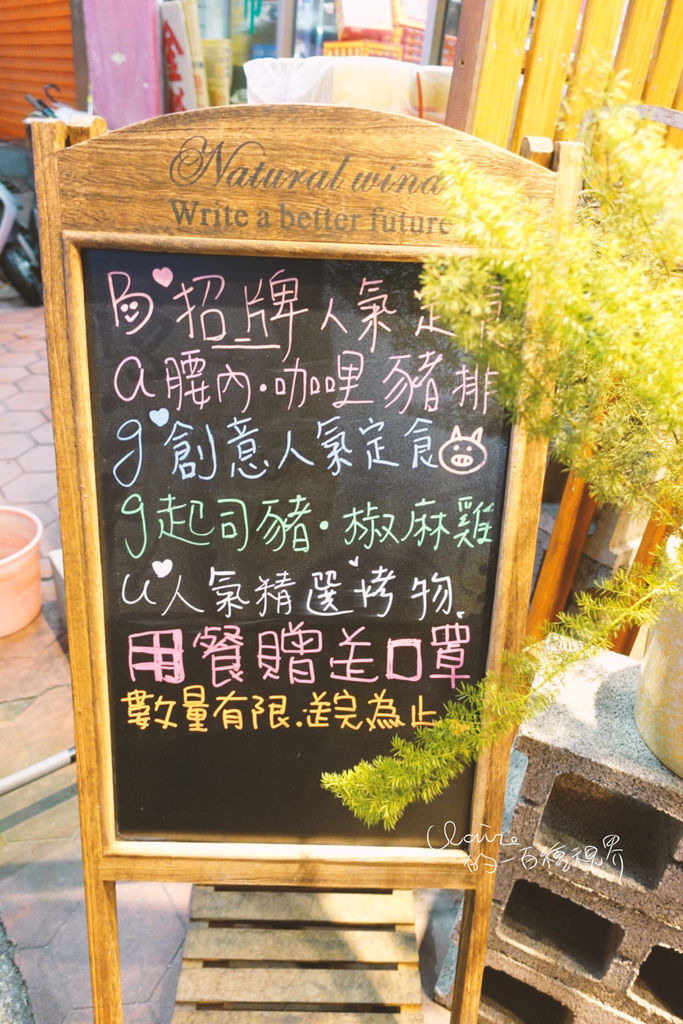 金
Natural wind
Write a better future
B 招牌人氣定食
a 腰內·咖哩豬排
g 創意人氣定食
g 起司豬·椒麻雞
u 人氣精選烤物
用餐贈送口罩
數量有限.送完為止
Claire
的一百種視界